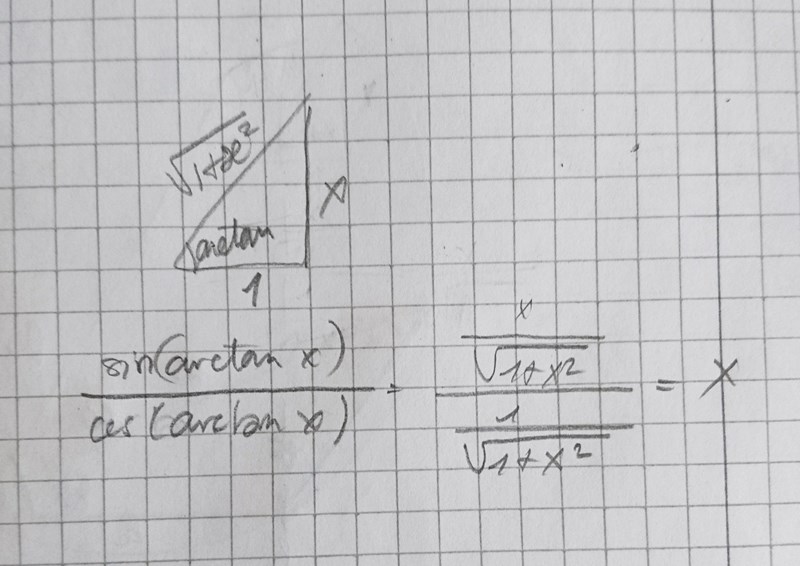 √1+x²
arctan
x
1
sin(arctan x) / cos(arctan x) = x/√1+x² / 1/√1+x² = x